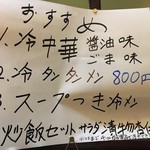 おすすめ
1.冷中華 醤油味
ごま味
2.冷タンタンメン 800円
3.スープつき冷メン
炒飯セット サラダ 漬物